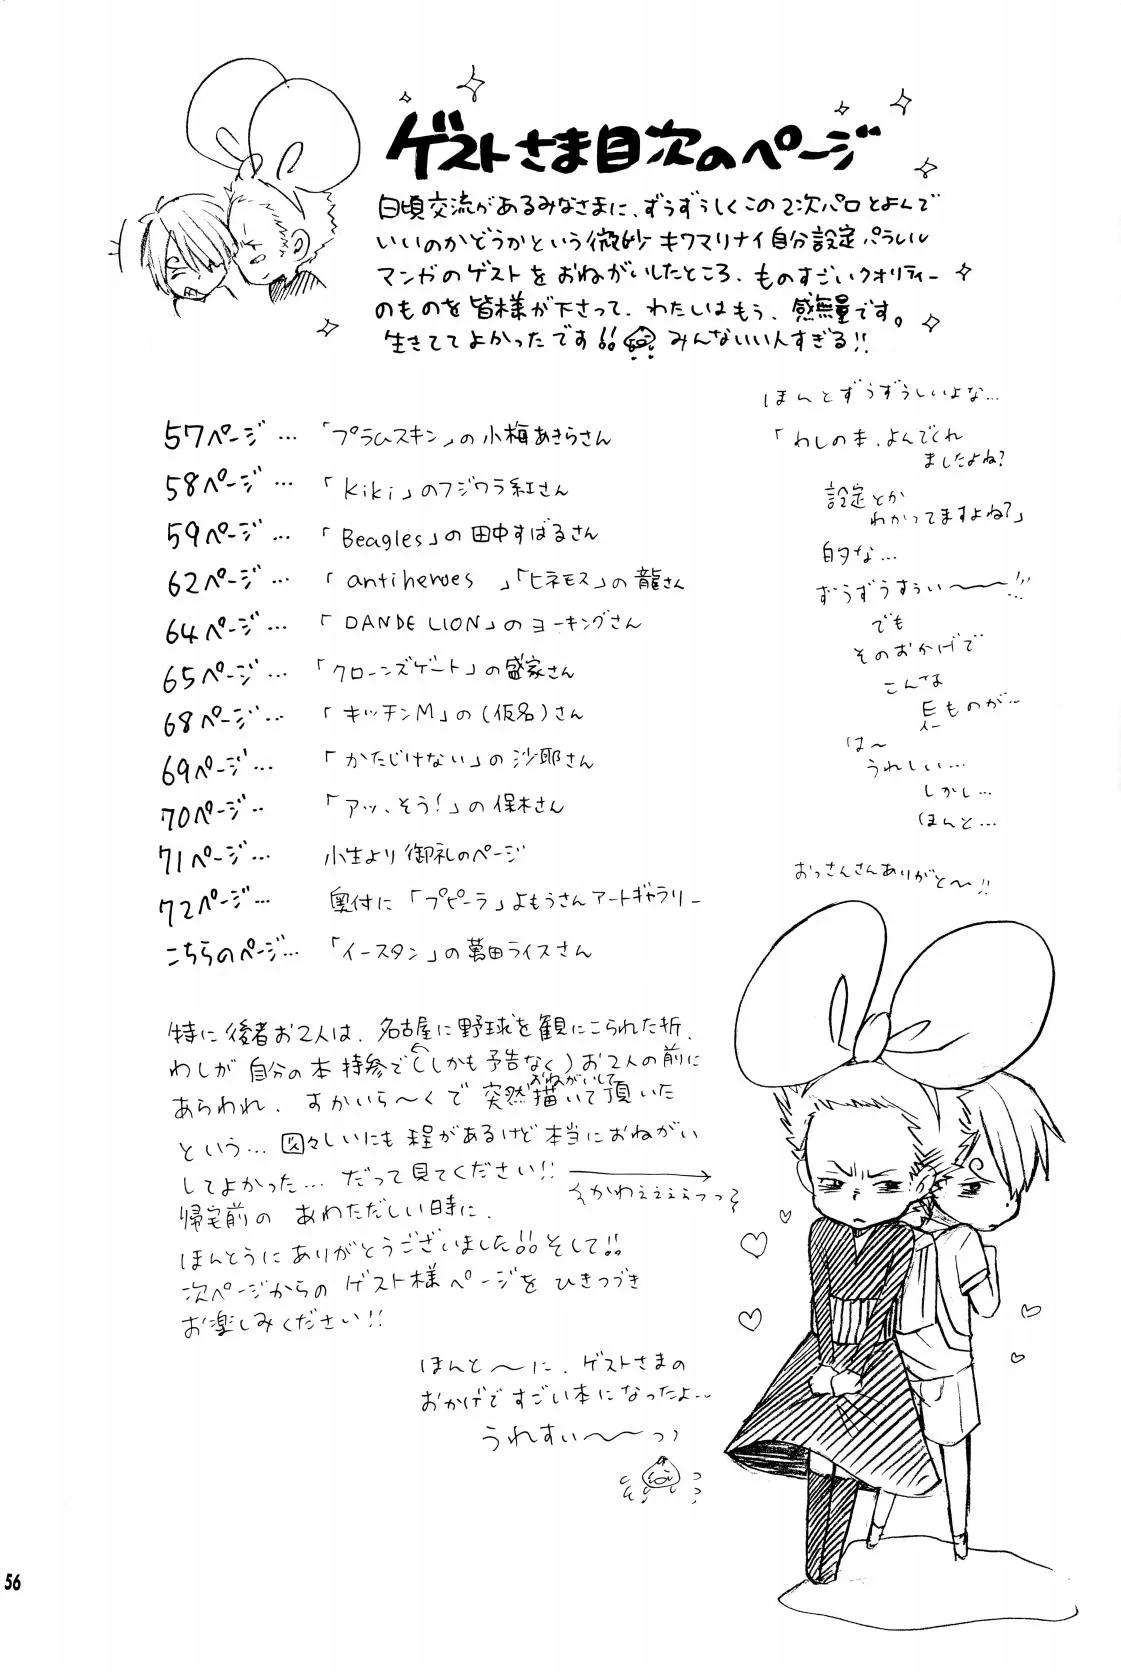 ゲストさま目次のページ
日頃交流があるみなさまに、ずうずうしくこの2次パロとよんで
いいのかどうかという微妙キワマリナイ自分設定パラレル
マンガのゲストをおねがいしたところ、ものすごいクオリティー
のものを皆様が下さって、わたしはもう、感無量です。
生きててよかったです!! みんないい人すぎる!!
57ページ… 「プラムスキン」の小梅あきらさん
58ページ… 「kiki」のフジワラ紅さん
59ページ… 「Beagles」の田中すばるさん
62ページ… 「antiheroes」「ヒネモス」の龍さん
64ページ… 「DANDELION」のヨーキングさん
65ページ… 「クローンズゲート」の盛家さん
68ページ… 「キッチンM」の(仮名)さん
69ページ… 「かたじけない」の沙耶さん
70ページ… 「アッ、そう!」の保木さん
71ページ… 小生より御礼のページ
72ページ… 奥付に「プピーラ」よもうさんアートギャラリー
こちらのページ… 「イースタン」の萬田ライスさん
ほんとずうずうしいよな…
「わしの本、よんでくれ
ましたよね?
設定とか
わかってますよね?」
的な…
ずうずうすぅい〜〜!!!
でも
そのおかげで
こんなま
ものが…
は〜
うれしい…
しかし…
ほんと…
おっさんさんありがと〜!!
特に後者お2人は、名古屋に野球を観にこられた折、
わしが自分の本持参で(しかも予告なく)お2人の前に
あらわれ、すかいら〜くで突然おねがいして描いて頂いた
という… 図々しいにも程があるけど本当におねがい
してよかった… だって見てください!!
かわえぇぇぇっっ
帰宅前のあわただしい時に、
ほんとうにありがとうございました!!そして!!
次ページからのゲスト様ページをひきつづき
お楽しみください!!
ほんと〜に、ゲストさまの
おかげですごい本になったよ…
うれすぃ〜〜っっ
56